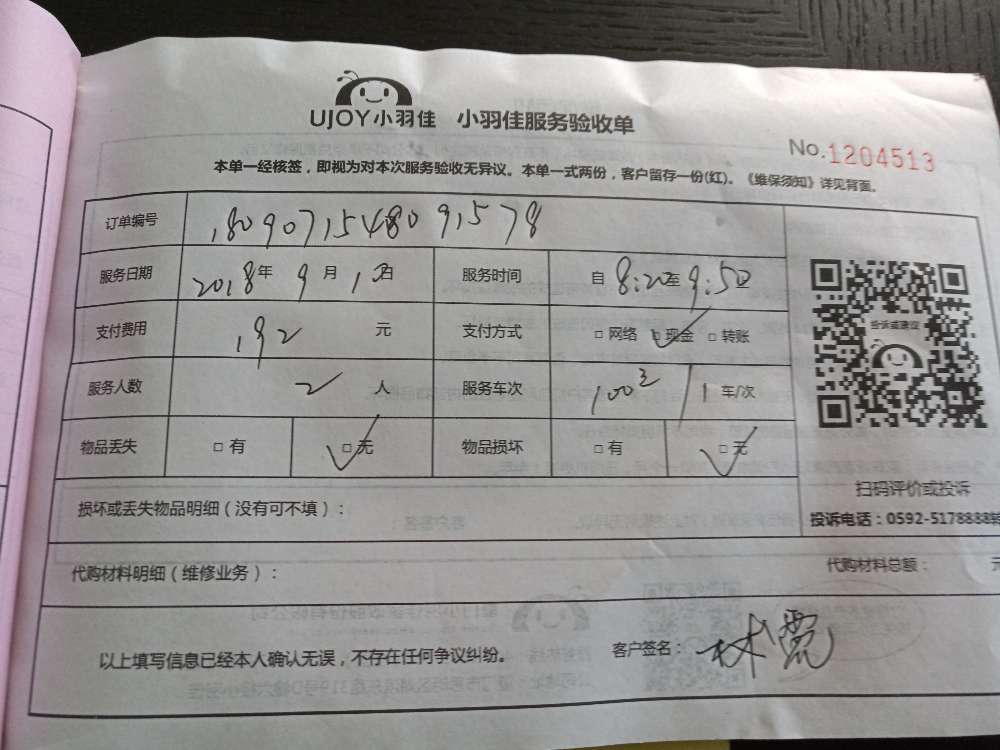 UJOY小羽佳 小羽佳服务验收单
No.1204513
本单一经核签，即视为对本次服务验收无异议。本单一式两份，客户留存一份(红)。《维保须知》详见背面。
订单编号 1809071548091578
服务日期 2018年 9月 10日 服务时间 自 8:20至 9:50
支付费用 192 元 支付方式 □网络 □现金 □转账
服务人数 2 人 服务车次 1 车/次
物品丢失 □有 □无 物品损坏 □有 □无
投诉或建议
扫码评价或投诉
投诉电话：0592-5178888转
损坏或丢失物品明细（没有可不填）：
代购材料明细（维修业务）： 代购材料总额： 元
以上填写信息已经本人确认无误，不存在任何争议纠纷。 客户签名： 林霓